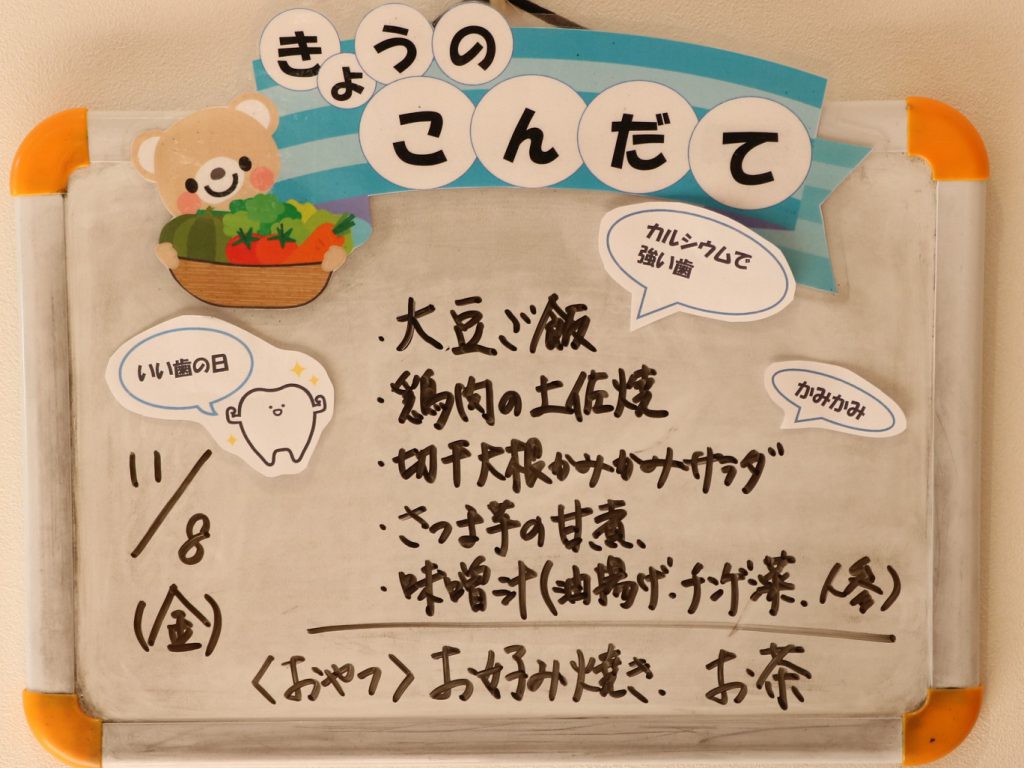 きょうの
こんだて
カルシウムで
強い歯
・大豆ご飯
いい歯の日
・鶏肉の土佐焼
かみかみ
・切干大根かみかみサラダ
11/8
・さつま芋の甘煮
・味噌汁(油揚げ・チンゲン菜、人参)
(金)
〈おやつ〉お好み焼き、お茶